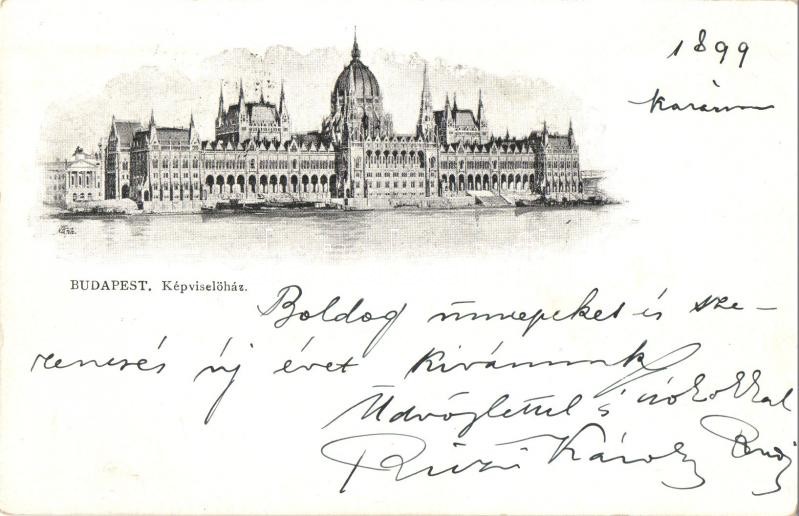 1899
BUDAPEST. Képviselöház.
Boldog ünnepeket és sze-
rencsés új évet kivánunk
Üdvözlettel s csókokkal
Károly